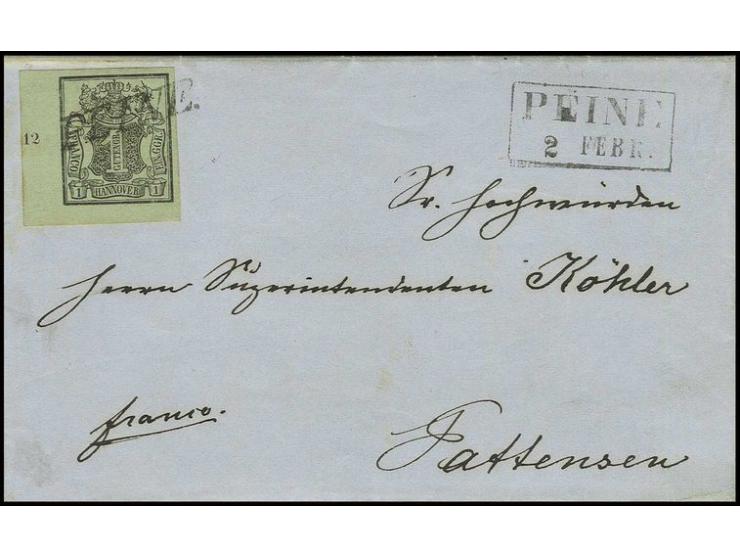 12
1 GUTENGR.
FRANCO
1 HANNOVER 1
PEINE
2 FEBR.
Sr. Hochwürden
Herrn Superintendenten Köhler
franco.
Pattensen